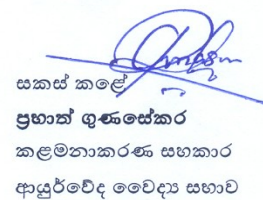 සකස් කළේ
ප්‍රභාත් ගුණසේකර
කළමනාකරණ සහකාර
ආයුර්වේද වෛද්‍ය සභාව